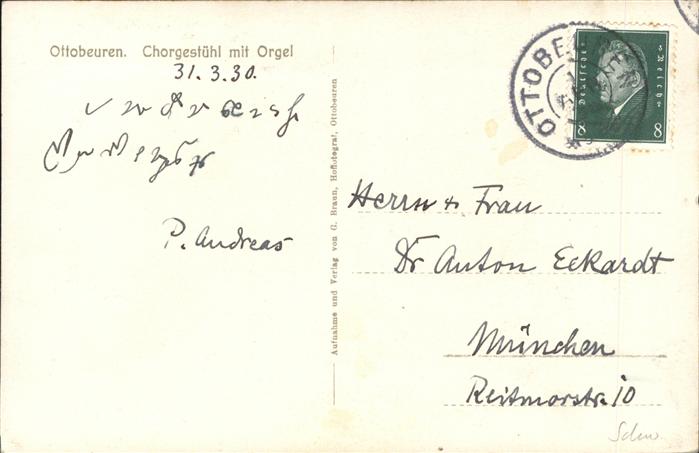 Ottobeuren. Chorgestühl mit Orgel
31.3.30.
P. Andreas
Aufnahme und Verlag von G. Braun, Hoffotograf, Ottobeuren
OTTOBEUREN
Deutsches Reich
8 8
Herrn & Frau
Dr Anton Eckardt
München
Reitmorstr. 10